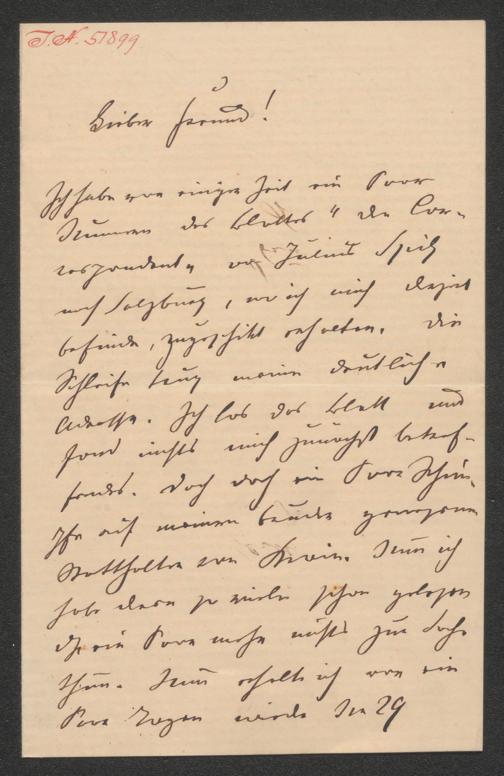 I.N. 51899
Lieber Freund!
Ich habe vor einiger Zeit ein Paar
Nummern des Blattes " der Cor-
respondent " von Julius Spitz
nach Salzburg, wo ich mich derzeit
befinde, zugeschikt erhalten. Die
Schleife trug meine deutliche
Adresse. Ich las das Blatt und
fand nichts mich zunächst betref-
fendes. Doch doch ein Paar Schim-
pfe auf meinen Bruder gewesenen
Statthalter von Krain. Nun ich
habe deren so viele schon gelesen
daß ein Paar mehr nichts zur Sache
thun. Nun erhalte ich vor ein
Paar Tagen wieder Nro 29